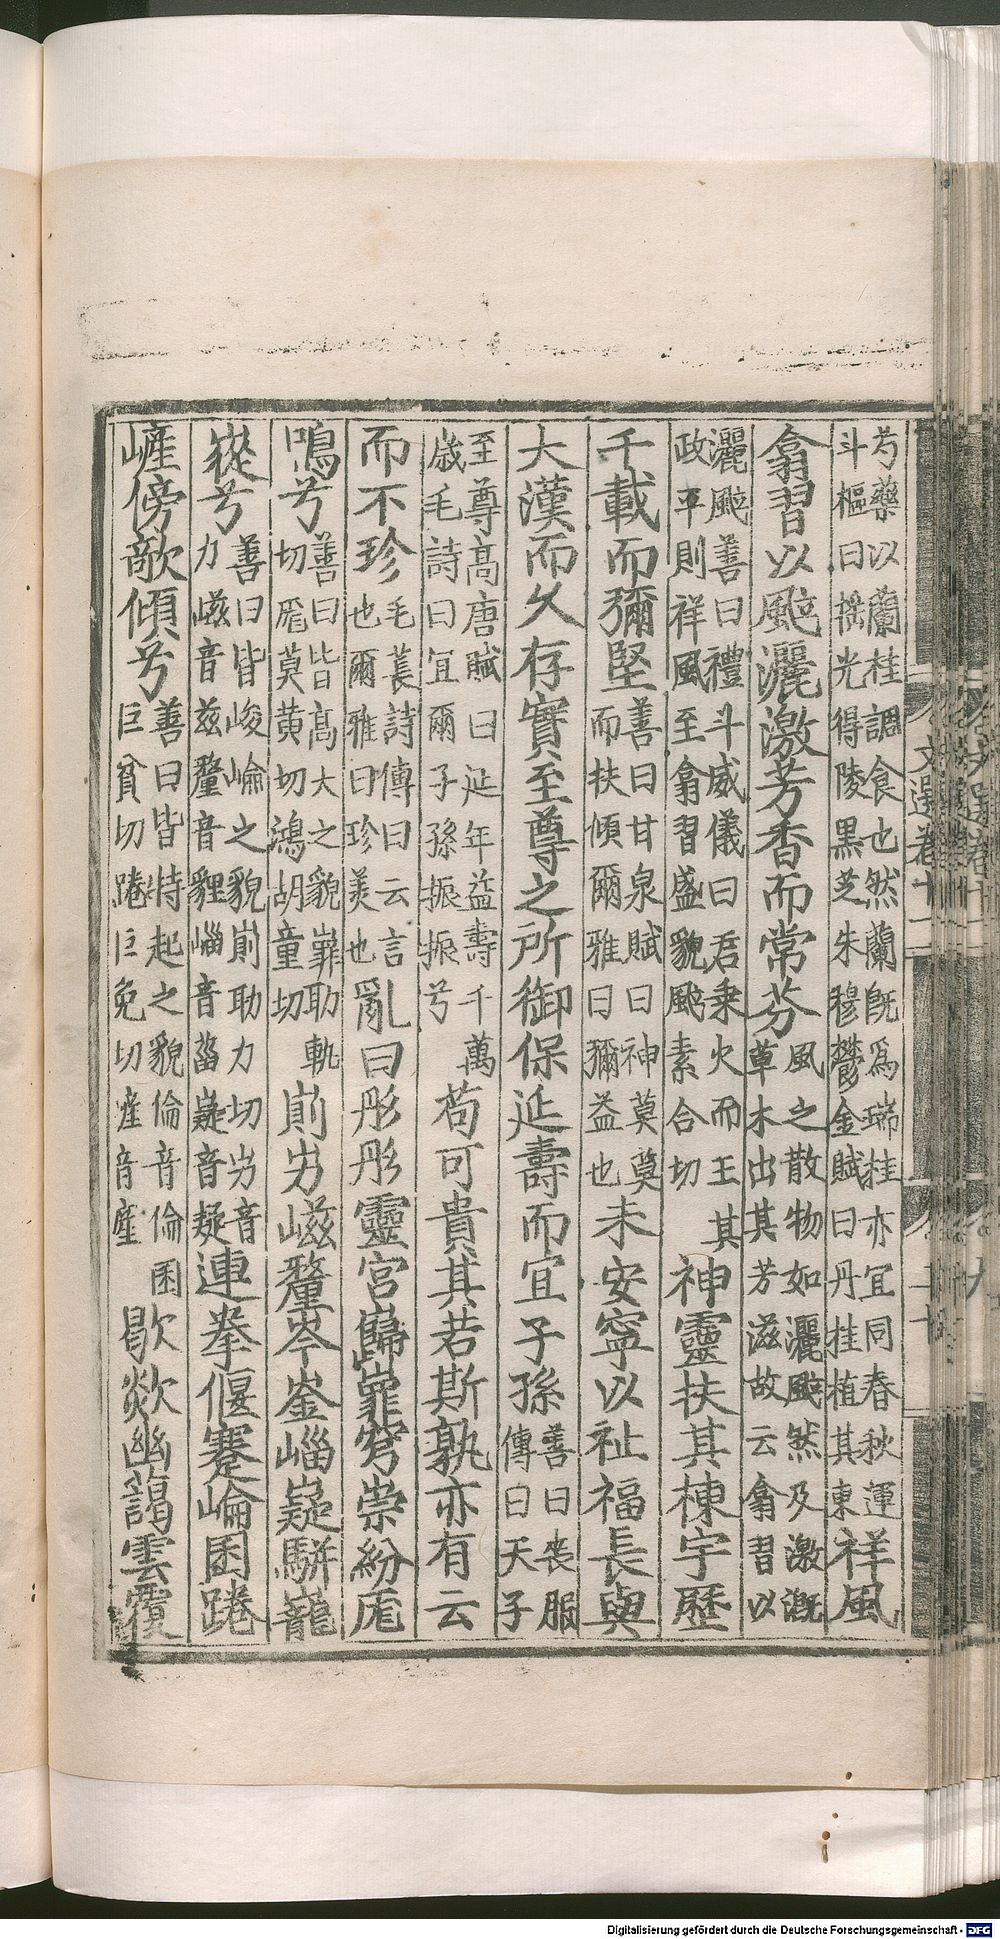 芍藥以蘭桂調食也然蘭旣爲瑞桂亦宜同春秋運
斗樞曰搖光得陵黑芝朱穆鬱金賦曰丹桂植其東
祥風
翕習以颯灑激芳香而常芬
風之散物如灑颯然及激漑
草木出其芳滋故云翕習以
灑颯善曰禮斗威儀曰君乘火而王其
政平則祥風至翕習盛貌颯素合切
神靈扶其棟宇歷
千載而彌堅
善曰甘泉賦曰神莫莫
而扶傾爾雅曰彌益也
未安寧以祉福長與
大漢而久存實至尊之所御保延壽而宜子孫
善曰喪服
傳曰天子
至尊高唐賦曰延年益壽千萬
歲毛詩曰宜爾子孫振振兮
苟可貴其若斯孰亦有云
而不珍
毛萇詩傳曰云言
也爾雅曰珍美也
亂曰彤彤靈宮歸嶵穹崇紛厖
鴻兮
善曰皆高大之貌嶵助軌
切厖莫黄切鴻胡童切
崱屴嵫釐岑崟崰嶷駢巃
嵸兮
善曰皆峻崘之貌崱助力切屴音
力嵫音兹釐音貍崰音菑嶷音疑
連拳偃蹇崘囷踡
㟴傍欹傾兮
善曰皆特起之貌倫音倫囷
巨貧切踡巨免切㟴音産
歇欻幽藹雲覆
文選卷十一